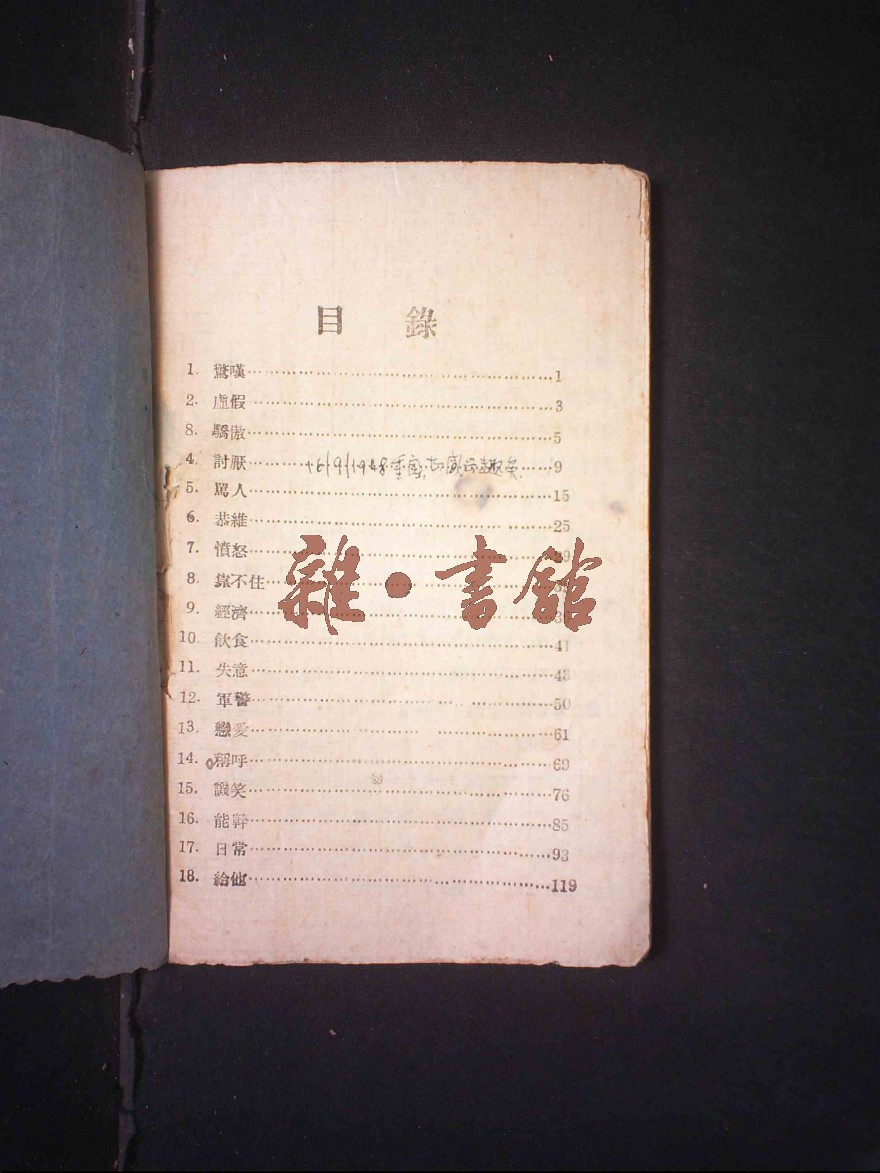 目 錄
1. 驚嘆 1
2. 虛假 3
8. 驕傲 5
4. 討厭 16/9/1948 9
5. 罵人 15
6. 恭維 25
7. 憤怒
8. 靠不住
9. 經濟
雜·書館
10. 飲食 41
11. 失意 43
12. 軍警 50
13. 戀愛 61
14. 稱呼 69
15. 譏笑 76
16. 能幹 85
17. 日常 93
18. 給他 119